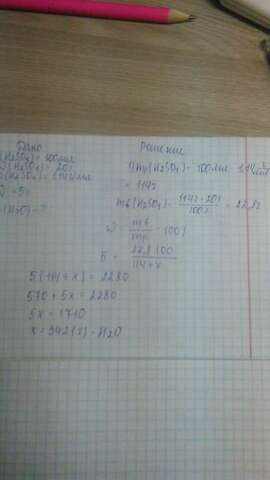 Дано
(H₂SO₄) = 100мл
(H₂SO₄) = 20%
(H₂SO₄) = 1,14г/мл
= 5%
(H₂O) - ?
Решение
1) mр(H₂SO₄) = 100мл · 1,14 г/мл
= 114г
mв(H₂SO₄) = 114г · 20% / 100% = 22,8г
ω = mв / mр · 100%
5 = 22,8 · 100 / 114 + x
5(114 + x) = 2280
570 + 5x = 2280
5x = 1710
x = 342(г) - H₂O